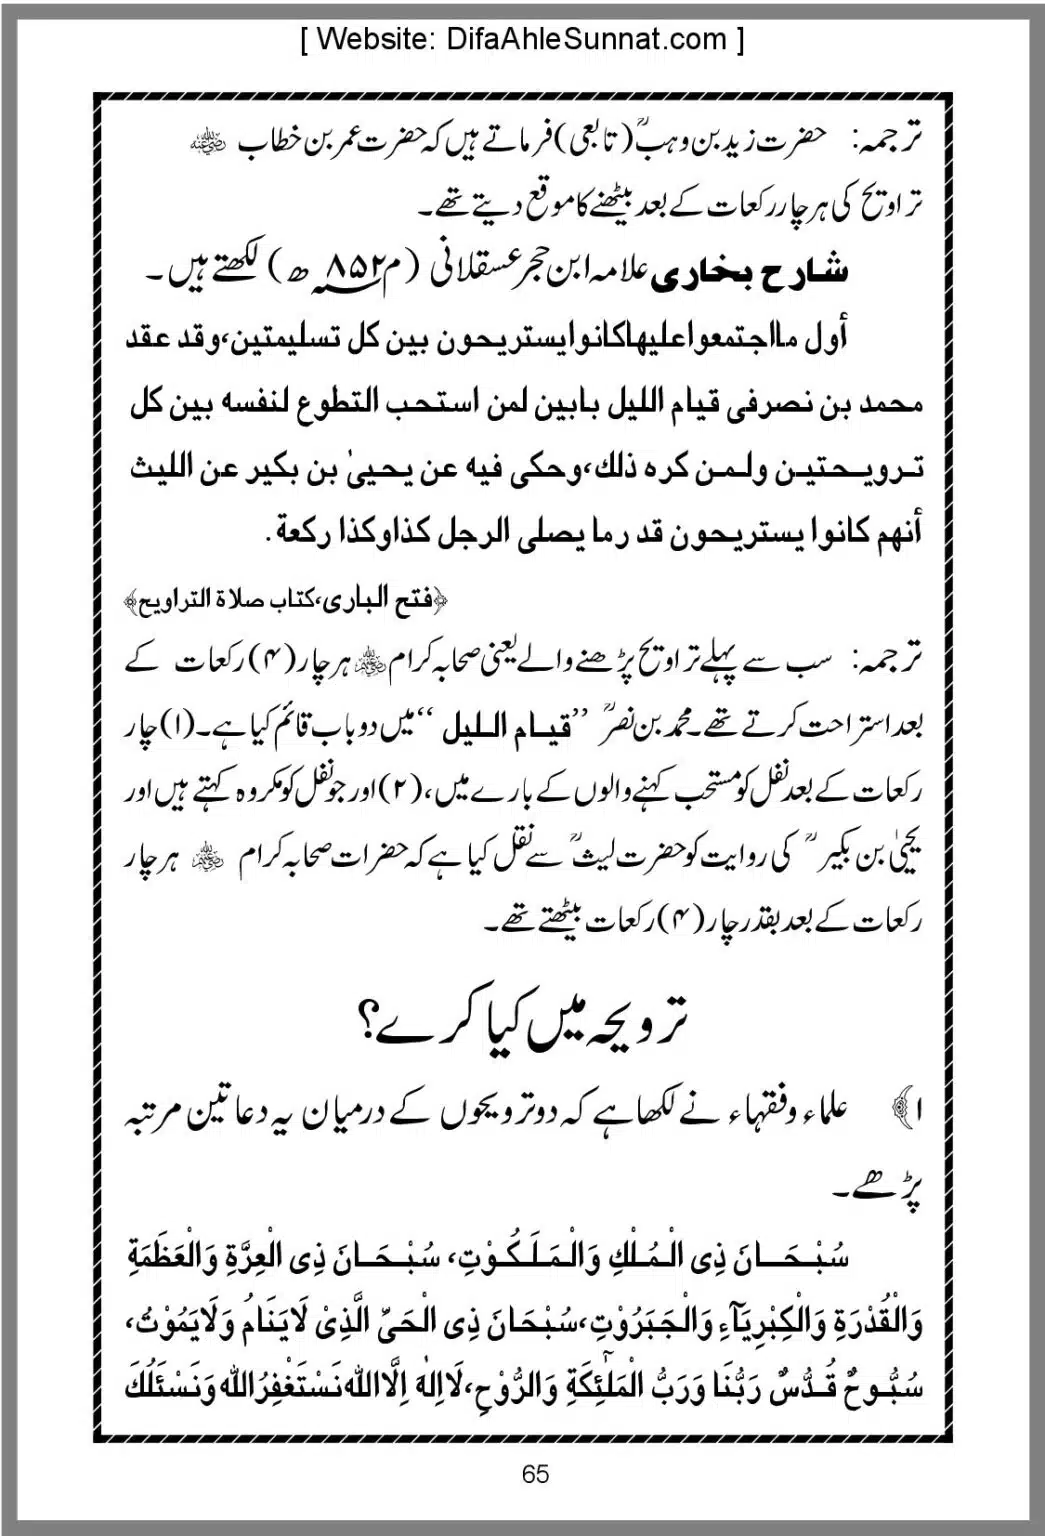 [ Website: DifaAhleSunnat.com ]
ترجمہ: حضرت زید بن وہبؒ (تابعی) فرماتے ہیں کہ حضرت عمر بن خطاب ؓ
تراویح کی ہر چار رکعات کے بعد بیٹھنے کا موقع دیتے تھے۔
شارح بخاری علامہ ابن حجر عسقلانی (م ۸۵۲ھ) لکھتے ہیں۔
أول مااجتمعوا عليها كانوا يستريحون بين كل تسليمتين،وقد عقد
محمد بن نصر فى قيام الليل بابين لمن استحب التطوع لنفسه بين كل
ترويحتين ولمن كره ذلك،وحكى فيه عن يحيىٰ بن بكير عن الليث
أنهم كانوا يستريحون قد رما يصلى الرجل كذا وكذا ركعة.
﴿فتح البارى،كتاب صلاة التراويح﴾
ترجمہ: سب سے پہلے تراویح پڑھنے والے یعنی صحابہ کرام ؓ ہر چار (۴) رکعات کے
بعد استراحت کرتے تھے۔ محمد بن نصرؒ ’’قیام اللیل‘‘ میں دو باب قائم کیا ہے۔ (۱) چار
رکعات کے بعد نفل کو مستحب کہنے والوں کے بارے میں، (۲) اور جو نفل کو مکروہ کہتے ہیں اور
یحییٰ بن بکیرؒ کی روایت کو حضرت لیثؒ سے نقل کیا ہے کہ حضرات صحابہ کرام ؓ ہر چار
رکعات کے بعد بقدر چار (۴) رکعات بیٹھتے تھے۔
ترویحہ میں کیا کرے؟
۱﴾ علماء و فقہاء نے لکھا ہے کہ دو ترویحوں کے درمیان یہ دعا تین مرتبہ
پڑھے۔
سُبْحَانَ ذِی الْمُلْكِ وَالْمَلَكُوْتِ، سُبْحَانَ ذِی الْعِزَّةِ وَالْعَظَمَةِ
وَالْقُدْرَةِ وَالْكِبْرِيَآءِ وَالْجَبَرُوْتِ،سُبْحَانَ ذِی الْحَیِّ الَّذِیْ لَايَنَامُ وَلَايَمُوْتُ،
سُبُّوحٌ قُدُّسٌ رَبُّنَا وَرَبُّ الْمَلٰٓئِكَةِ وَالرُّوْحِ،لَااِلٰهَ اِلَّااللّٰه نَسْتَغْفِرُاللّٰه وَنَسْئَلُكَ
65